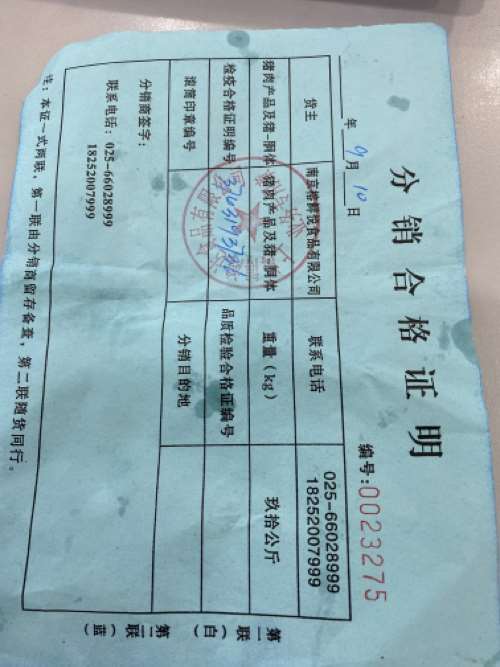 分销合格证明
编号:0023275
年 9月 10日
货主 南京榕辉悦食品有限公司 联系电话 025-66028999
18252007999
猪肉产品及猪-胴体 猪肉产品及猪-胴体 重量(kg) 玖拾公斤
检疫合格证明编号 品质检验合格证编号
滚筒印章编号 分销目的地
分销商签字:
联系电话:025-66028999
18252007999
注:本证一式两联,第一联由分销商留存备查,第二联随货同行。
第一联(白) 第二联(蓝